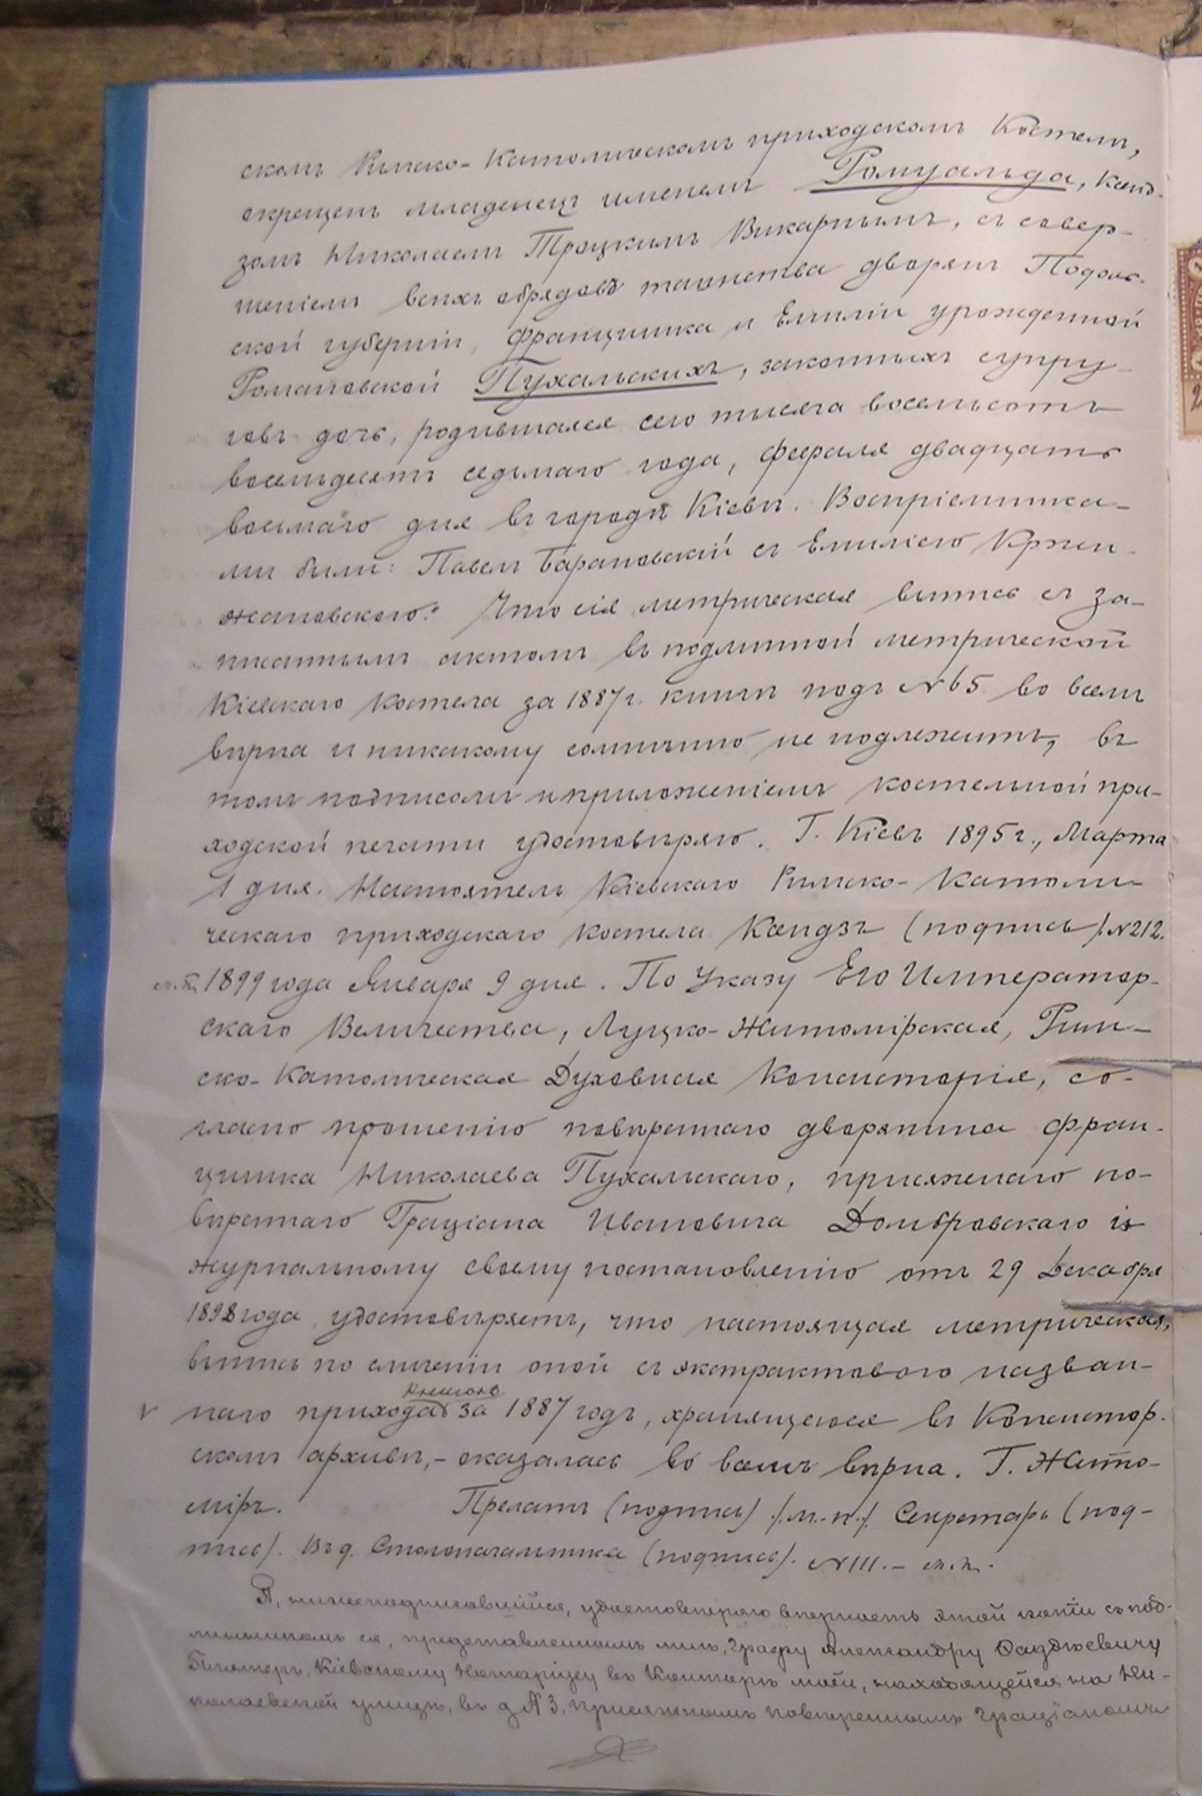 скомъ Римско-Католическомъ приходскомъ Костелѣ,
окрещенъ младенецъ именемъ Ромуальда, Ксенд-
зомъ Николаемъ Троцкимъ Викарнымъ, съ совер-
шеніемъ всѣхъ обрядовъ таинства дворянъ Подоль-
ской губерніи, Францишка и Емиліи урожденной
Романовской Пухальскихъ, законныхъ супру-
говъ дочь, родившаяся сего тысяча восемьсотъ
восемьдесятъ седьмаго года, февраля двадцать
восьмаго дня въ городѣ Кіевѣ. Воспріемника-
ми были: Павелъ Барановскій съ Емиліею Кржи-
жановскою." Что сія метрическая выпись съ за-
писаннымъ актомъ въ подлинной метрической
Кіевскаго Костела за 1887 г. книгѣ подъ №65 во всемъ
вѣрна и никакому сомнѣнію не подлежитъ, въ
томъ подписомъ и приложеніемъ костельной при-
ходской печати удостовѣряю. Г. Кіевъ 1895 г., Марта
1 дня. Настоятель Кіевскаго Римско-Католи-
ческаго приходскаго костела Ксендзъ (подпись) №212.
м.п. 1899 года Января 9 дня. По Указу Его Император-
скаго Величества, Луцко-Житомірская, Рим-
ско-Католическая Духовная Консисторія, со-
гласно прошенію повѣреннаго дворянина Фран-
цишка Николаева Пухальскаго, присяжнаго по-
вѣреннаго Граціана Ивановича Домбровскаго и
журнальному своему постановленію отъ 29 Декабря
1898 года удостовѣряетъ, что настоящая метрическая,
выпись по сличеніи оной съ экстрактового назван-
наго прихода книгою за 1887 годъ, хранящеюся въ Консистор-
скомъ архивѣ,- оказалась во всемъ вѣрна. Г. Жито-
міръ. Прелатъ (подпись) /м.п./ Секретарь (под-
пись). Въ д. Столоначальника (подпись). №111.- м.п.
Я, нижеподписавшійся, удостовѣряю вѣрность этой копіи съ под-
линникомъ ея, представленнымъ мнѣ, Графу Александру Фаддѣевичу
Плятеръ, Кіевскому Нотаріусу въ Конторѣ моей, находящейся на Ни-
колаевской улицѣ, въ д. №3, присяжнымъ повѣреннымъ Граціаномъ